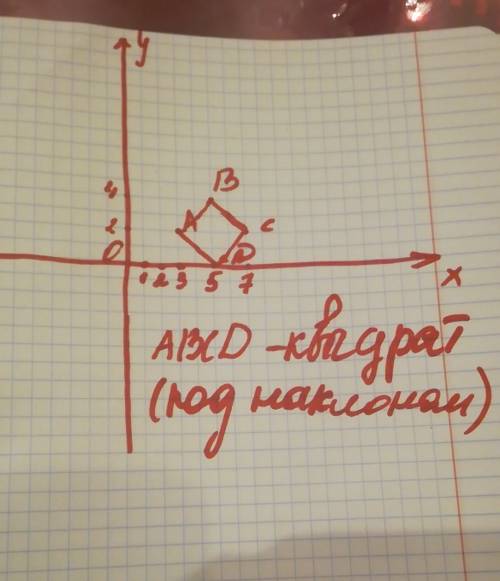 y
B
4
A
C
2
D
0
1 2 3 5 7
x
ABCD - квадрат
(под наклоном)